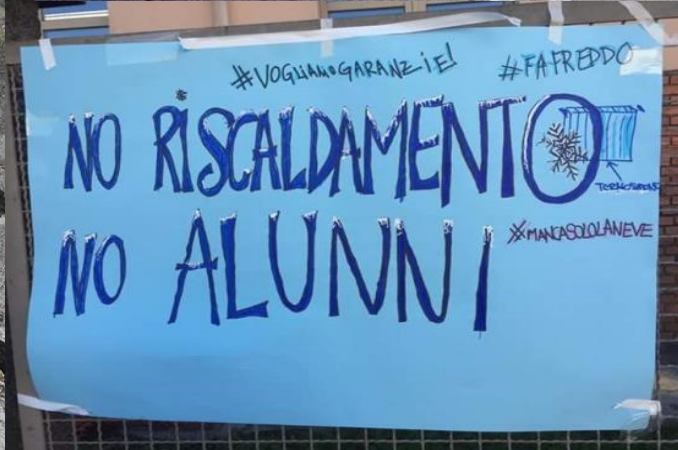 #VOGLIAMOGARANZIE!
#FAFREDDO
NO RISCALDAMENTO
TERMOSIFONE
#MANCASOLOLANEVE
NO ALUNNI